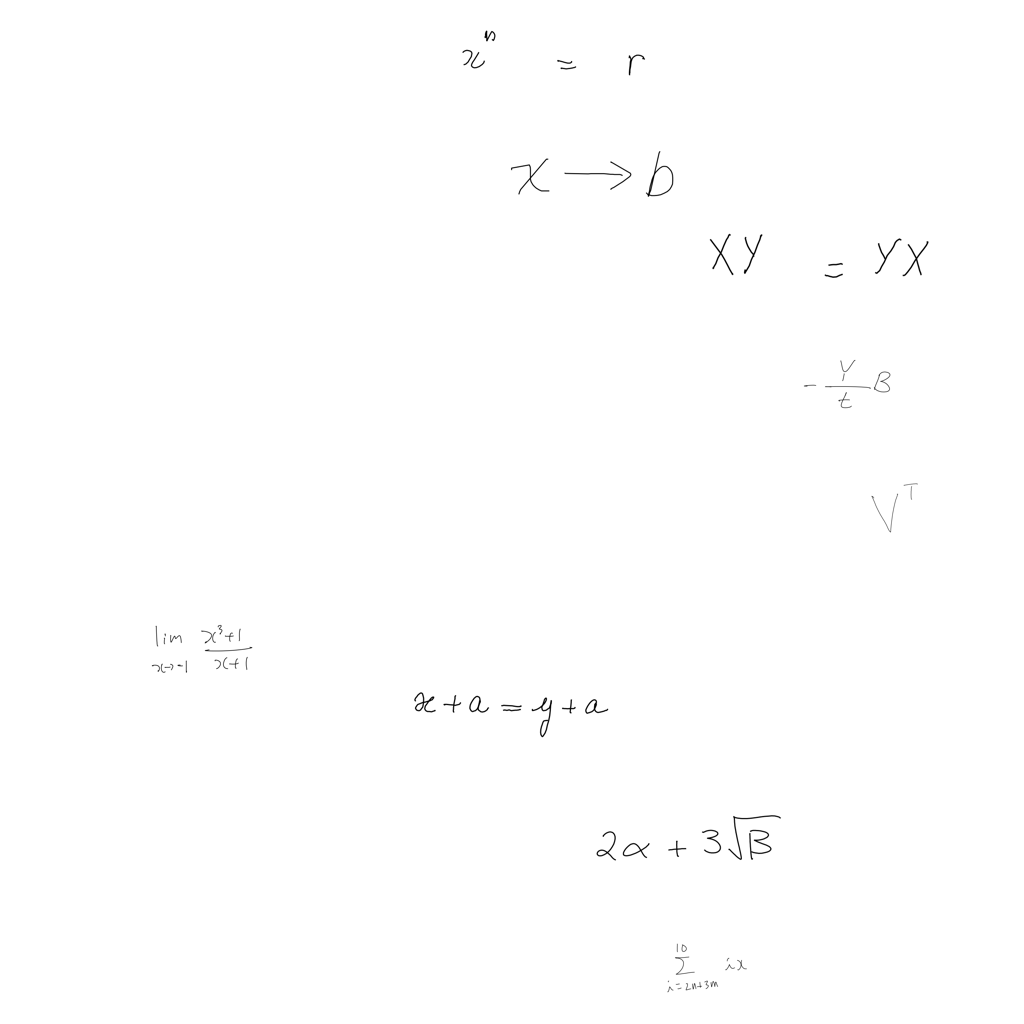 xⁿ = r
x → b
XY = YX
-\frac{Y}{t}B
V^T
\lim_{x \to -1} \frac{x^3+1}{x+1}
x + a = y + a
2α + 3√B
\sum_{i=2n+3m}^{10} ix